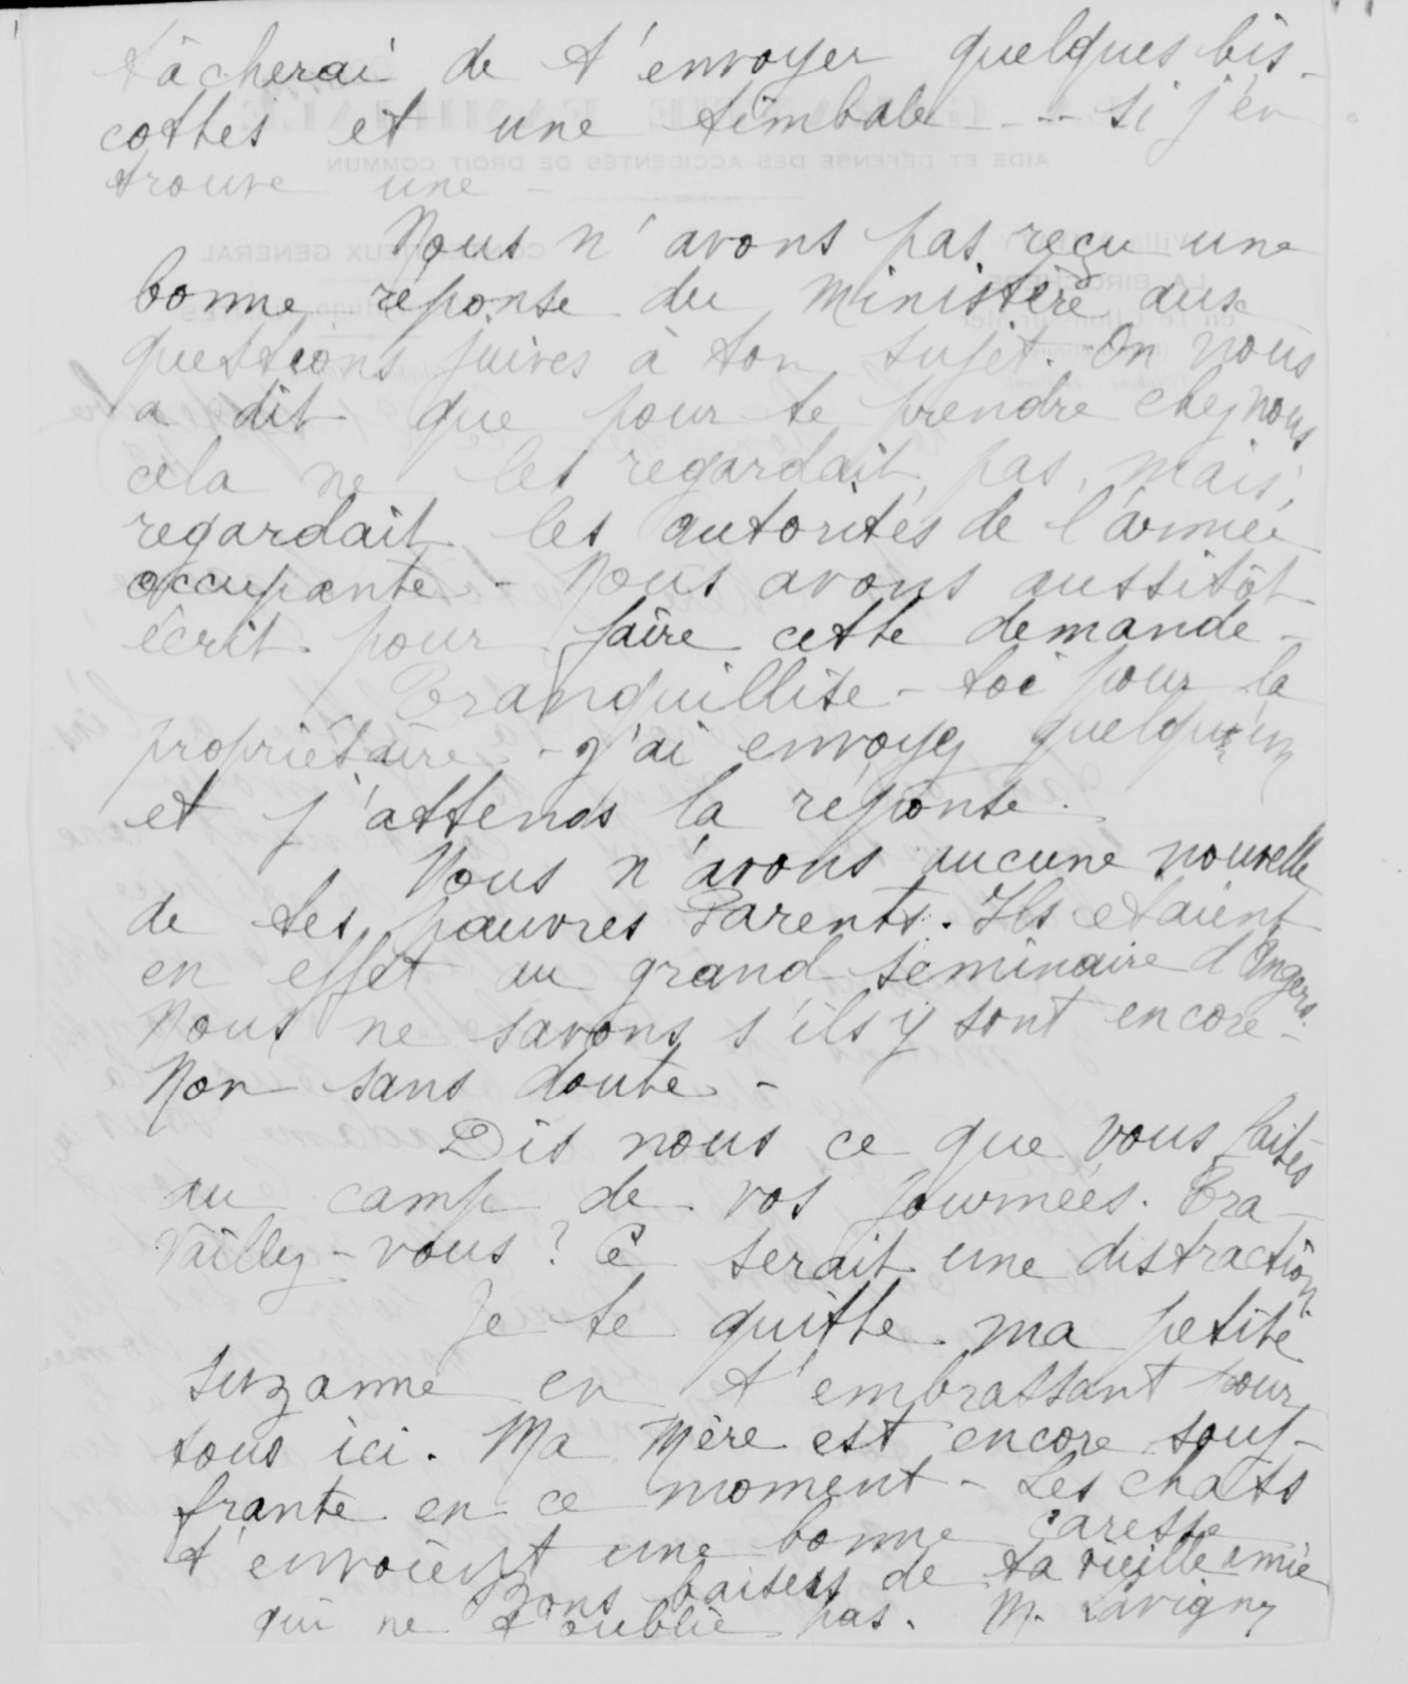 tâcherai de t'envoyer quelques bis-
cottes et une timbale --- si j'en
trouve une -
Nous n'avons pas reçu une
bonne réponse du Ministère aux
questions juives à ton sujet. On nous
a dit que pour te prendre chez nous
cela ne les regardait pas, mais,
regardait les autorités de l'armée
occupante - Nous avons aussitôt
écrit pour faire cette demande -
Tranquillise-toi pour la
propriétaire - J'ai envoyé quelqu'un
et j'attends la réponse.
Nous n'avons aucune nouvelle
de tes pauvres Parents. Ils etaient
en effet au grand séminaire d'Angers.
Nous ne savons s'ils y sont encore -
Non sans doute -
Dis nous ce que vous faites
au camp de vos journées. Tra-
vaillez-vous ? Ce serait une distraction.
Je te quitte ma petite
Suzanne en t'embrassant pour
tous ici. Ma Mère est encore souf-
frante en ce moment - Les chats
t'envoient une bonne caresse
Bons baisers de ta vieille amie
qui ne t'oublie pas. M. Lavigne
AIDE ET DÉFENSE DES ACCIDENTÉS DE DROIT COMMUN
CONTENTIEUX GENERAL